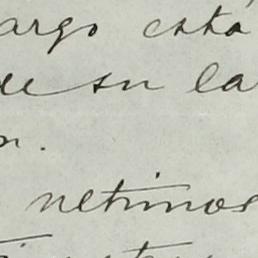 argo está
de su la
n.
netimos